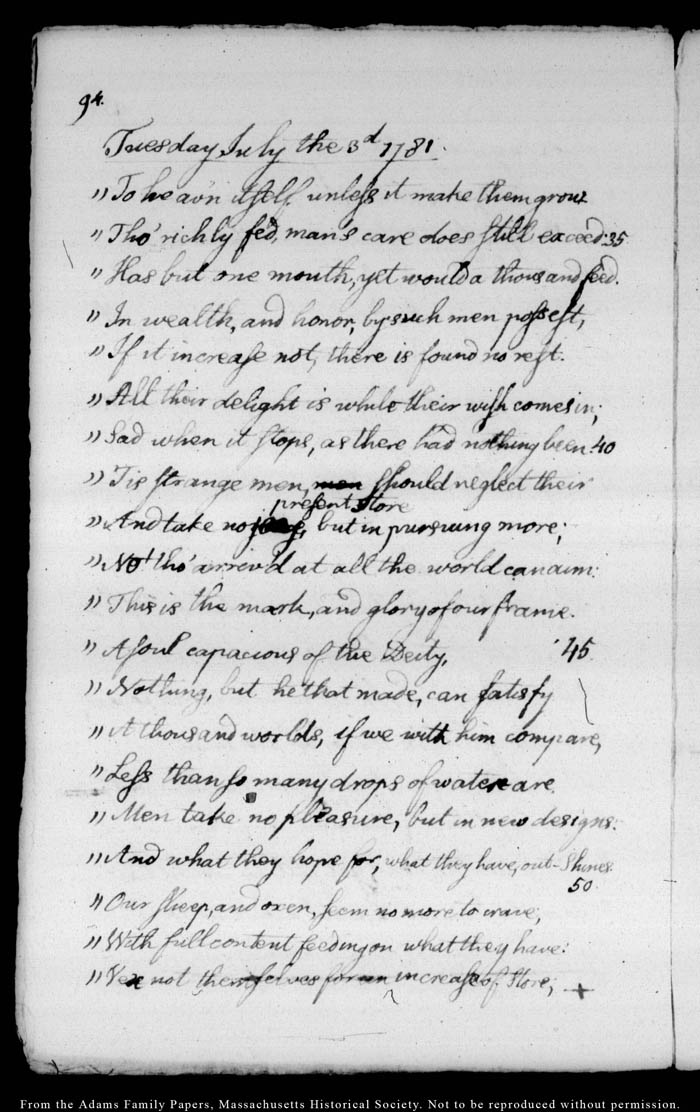 94.
Tuesday July the 3d 1781.
" To heav'n itself unless it make them grow
" Tho' richly fed, man's care does still exceed: 35
" Has but one mouth, yet would a thousand feed.
" In wealth, and honor, by such men possest,
" If it increase not, there is found no rest.
" All their delight is while their wish comes in;
" Sad when it stops, as there had nothing been. 40
" Tis strange men, men should neglect their
present store
" And take no joy, but in pursuing more;
" No! tho' arriv'd at all the world can aim:
" This is the mark, and glory of our frame.
" A soul capacious of the Deity, 45
" Nothing, but he that made, can satisfy
" A thousand worlds, if we with him compare,
" Less than so many drops of water are.
" Men take no pleasure, but in new designs:
" And what they hope for, what they have, out-Shines.
50
" Our Sheep, and oxen, seem no more to crave;
" With full content feeding on what they have:
" Vex not themselves for an increase of Store; +
From the Adams Family Papers, Massachusetts Historical Society. Not to be reproduced without permission.